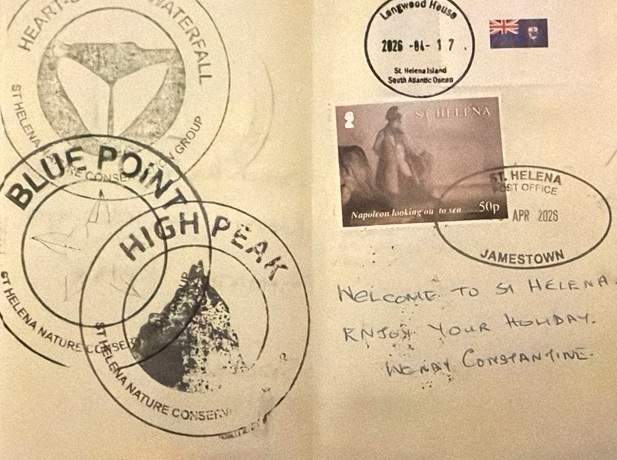 HEART-S WATERFALL
ST HELENA N GROUP
BLUE POINT
ST HELENA NATURE CONSERV
HIGH PEAK
ST HELENA NATURE CONSERV
Longwood House
2026 -04- 17 .
St. Helena Island
South Atlantic Ocean
ST HELENA
Napoleon looking out to sea 50p
ST. HELENA
POST OFFICE
APR 2026
JAMESTOWN
WELCOME TO ST HELENA.
ENJOY YOUR HOLIDAY.
CONSTANTINE.